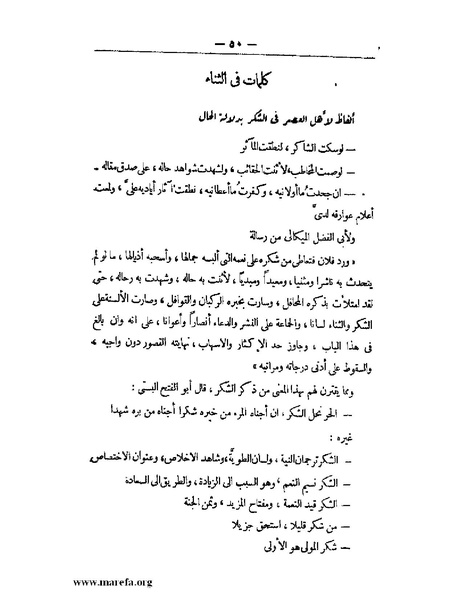 — ٥٠ —
كلمات فى الثناء
ألفاظ لأهل العصر فى الشكر بدلالة الحال
— لو سكت الشاكر ، لنطقت المآثر
— لو صمت المخاطب ، لأثنت الحقائب ، ولشهدت شواهد حاله ، على صدق مقاله
— ان جحدت ما أولانيه ، وكفرت ما أعطانيه ، نطقت آثار أياديه علىّ ، ولمعت
أعلام عوارفه لدىّ
ولأبى الفضل الميكالى من رسالة
« ورد فلان فتعاطى من شكره على نعمه التى ألبسه جمالها ، وأسحبه أذيالها ، ما لو لم
يتحدث به ناشرا ومثنيا ، ومعيداً ومبديا ، لأثنت به حاله ، وشهدت به رحاله ، حتى
لقد امتلأت بذكره المحافل ، وسارت بخبره الركبان والقوافل ، وصارت الألسنة على
الشكر والثناء لسانا ، والجماعة على النشر والدعاء أنصاراً وأعوانا ، على انه وان بالغ
فى هذا الباب ، وجاوز حد الإكثار والاسهاب ، نهايته القصور دون واجبه ،
والسقوط على أدنى درجاته ومراتبه »
ومما يقترن لهم بهذا المعنى من ذكر الشكر ، قال أبو الفتح البستى :
— الحر نحل الشكر ، ان أجناه المرء من خيره شكرا أجناه من بره شهدا
غيره :
— الشكر ترجمان النية ، ولسان الطويّة ، وشاهد الاخلاص ، وعنوان الاختصاص
— الشكر نسيم النعم ، وهو السبب الى الزيادة ، والطريق الى السعادة
— الشكر قيد النعمة ، ومفتاح المزيد ، وثمن الجنة
— من شكر قليلا ، استحق جزيلا
— شكر المولى هو الأولى
www.marefa.org